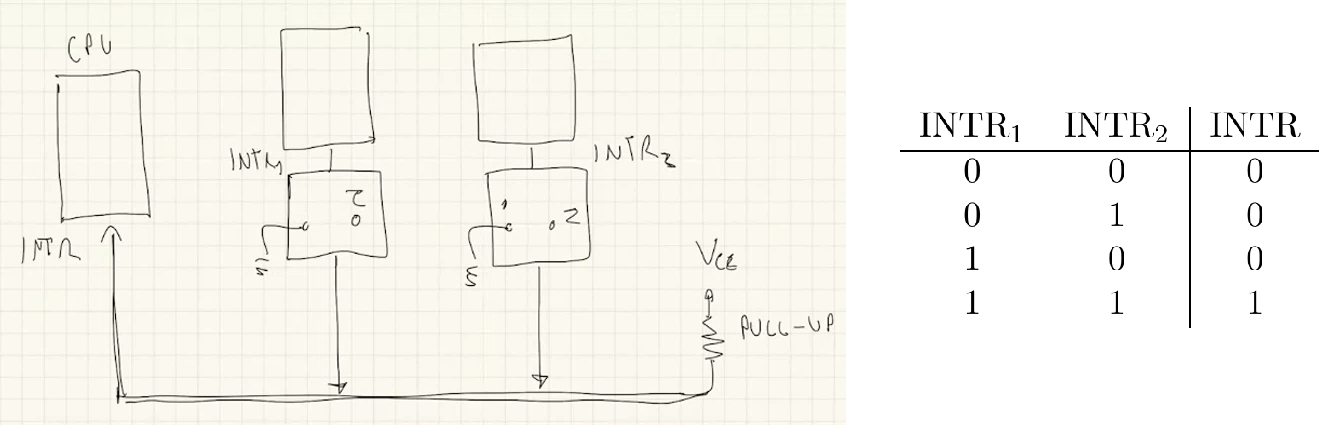 CPU
INTR
INTR1
INTR2
Z
0
1
0 Z
VCC
PULL-UP
INTR₁ INTR₂ INTR
0 0 0
0 1 0
1 0 0
1 1 1